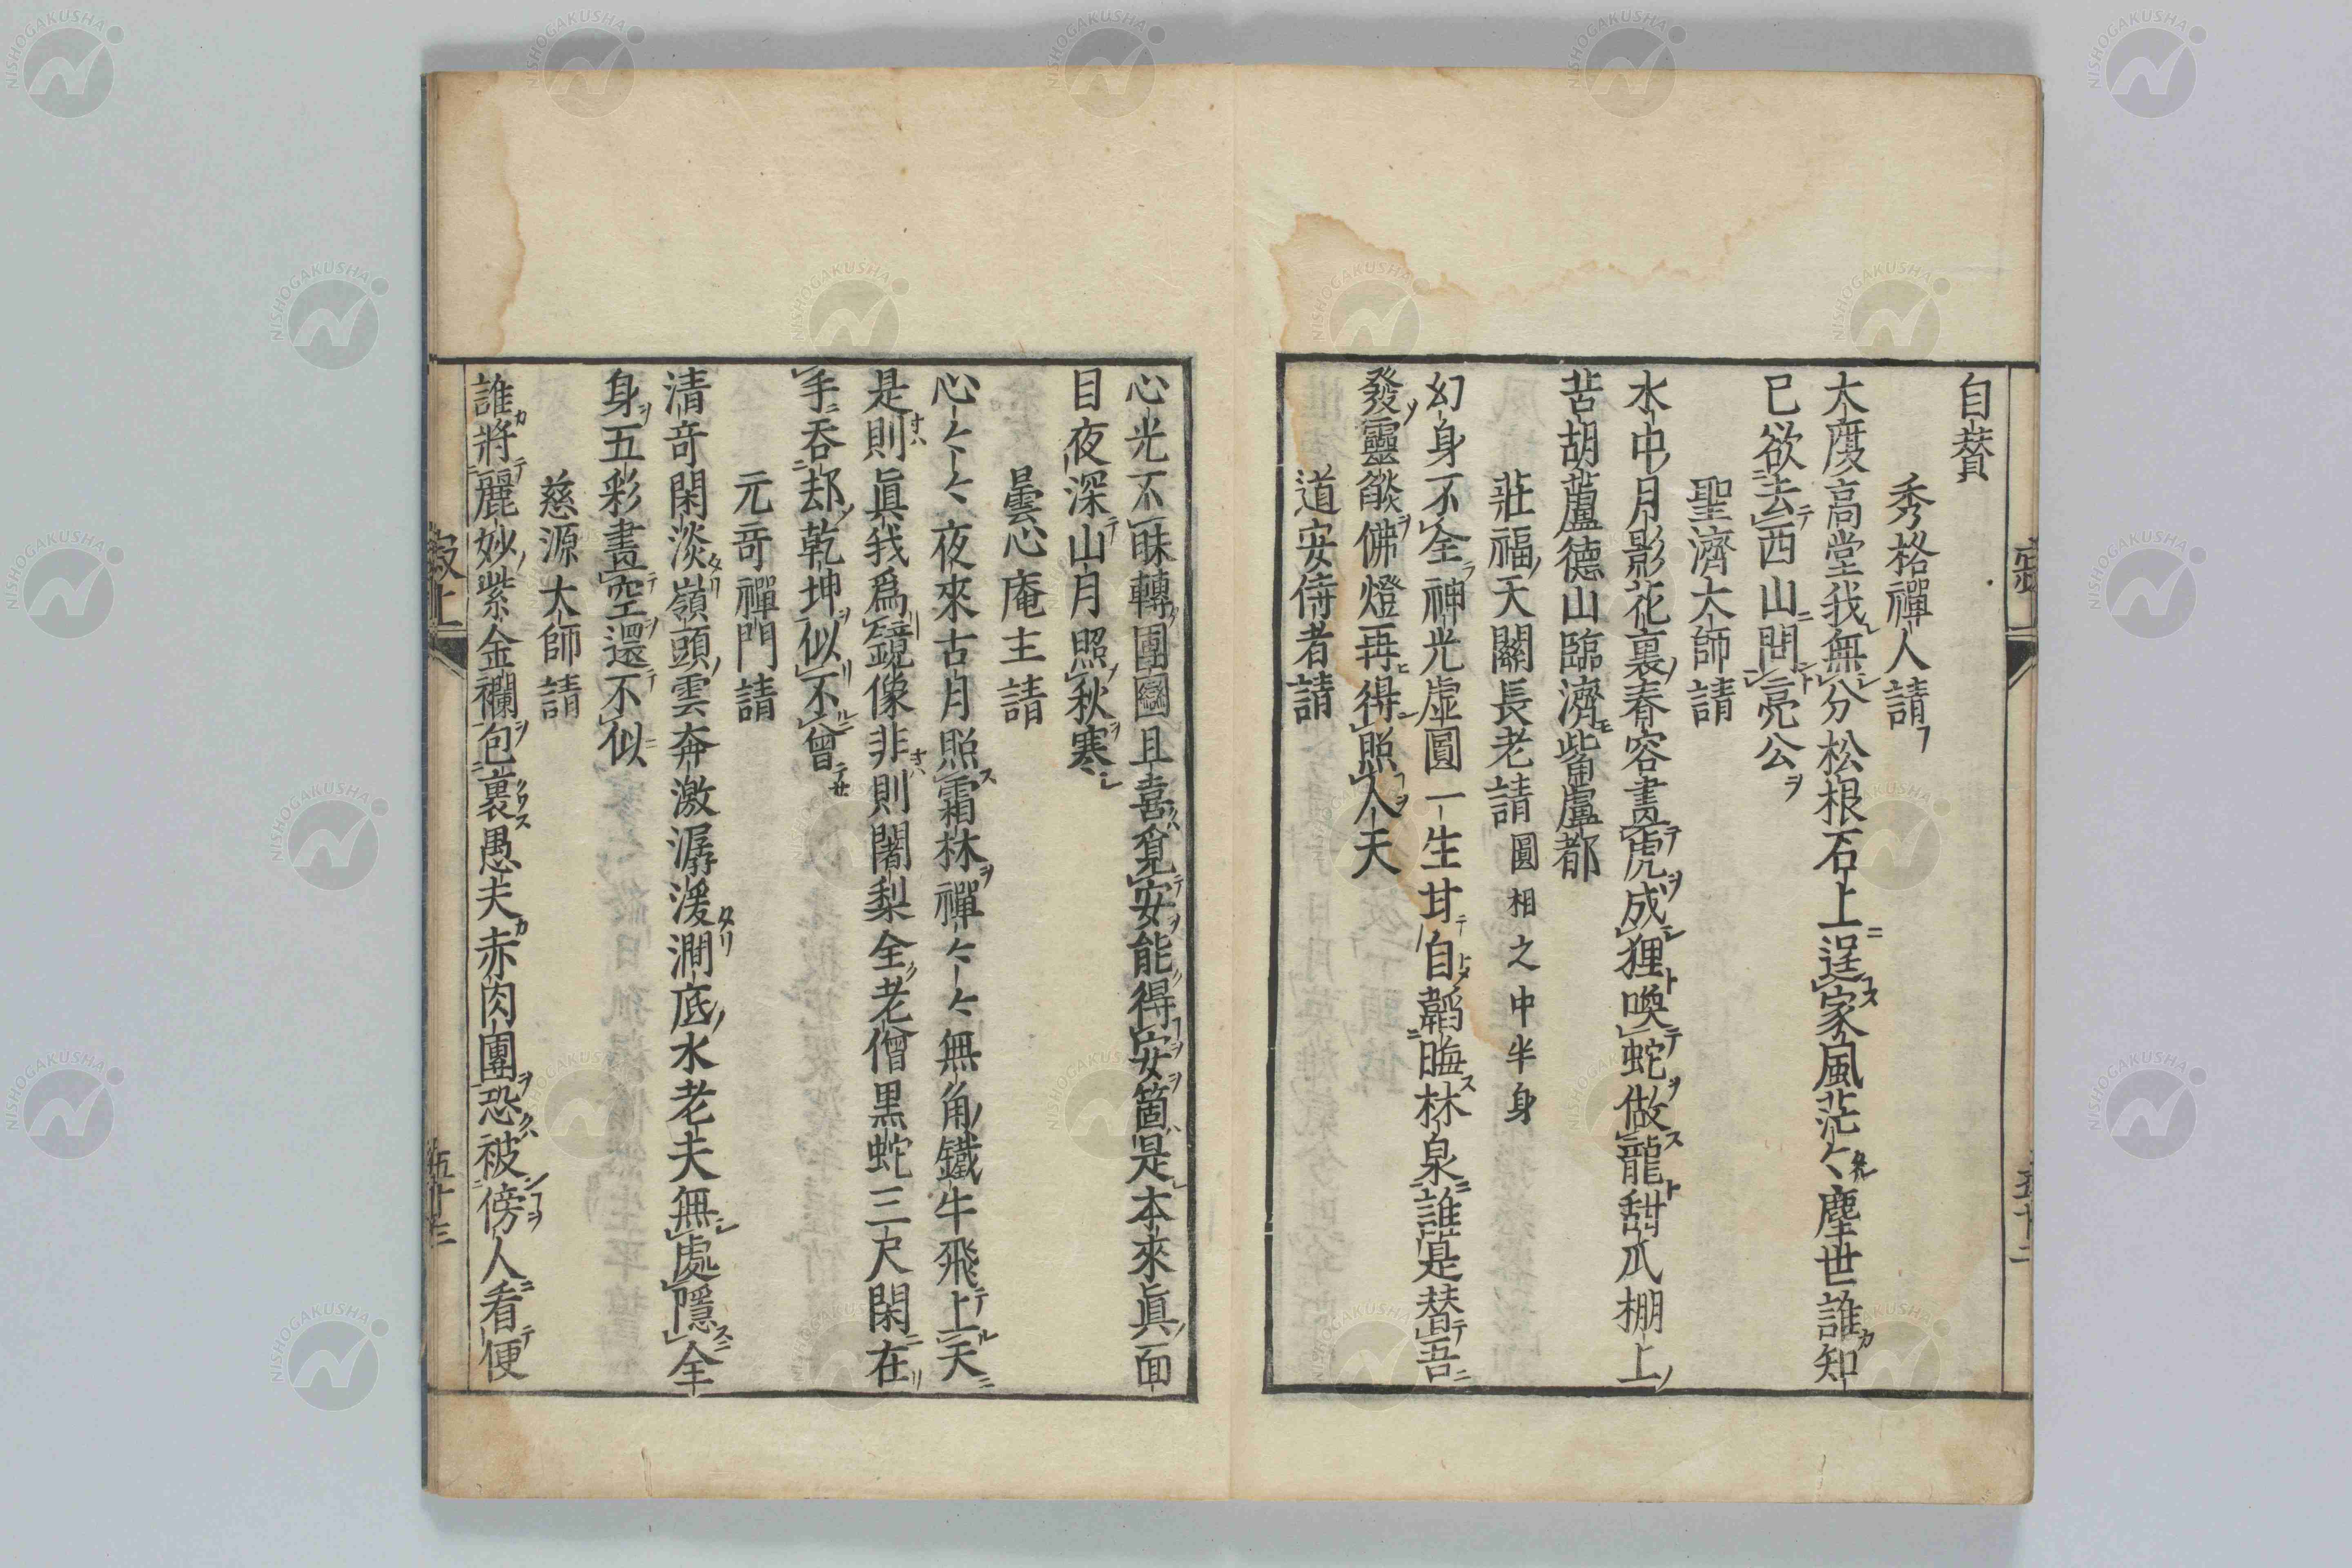 自賛
秀格禪人請
大度高堂我無分松根石上逞家風茫〻塵世誰知
已欲去西山問亮公
聖濟大師請
水中月影花裏春容畫虎成狸喚蛇做龍甜瓜棚上
苦胡蘆德山臨濟觜盧都
莊福天關長老請圓相之中半身
幻身不全神光虛圓一生甘自韜晦林泉誰是替吾
發靈燄佛燈再得照人天
道安侍者請
心光不昧轉團圝且喜覓安能得安箇是本來眞面
目夜深山月照秋寒
曇心庵主請
心〻〻夜來古月照霜林禪〻〻無角鐵牛飛上天
是則眞我爲鏡像非則闍梨全老僧黒蛇三尺閑在
手吞却乾坤似不曾
元奇禪門請
清奇閑淡嶺頭雲奔激潺湲澗底水老夫無處隱全
身五彩畫空還不似
慈源大師請
誰將麗妙紫金襴包裹愚夫赤肉團恐被傍人看便
寂上
五十三